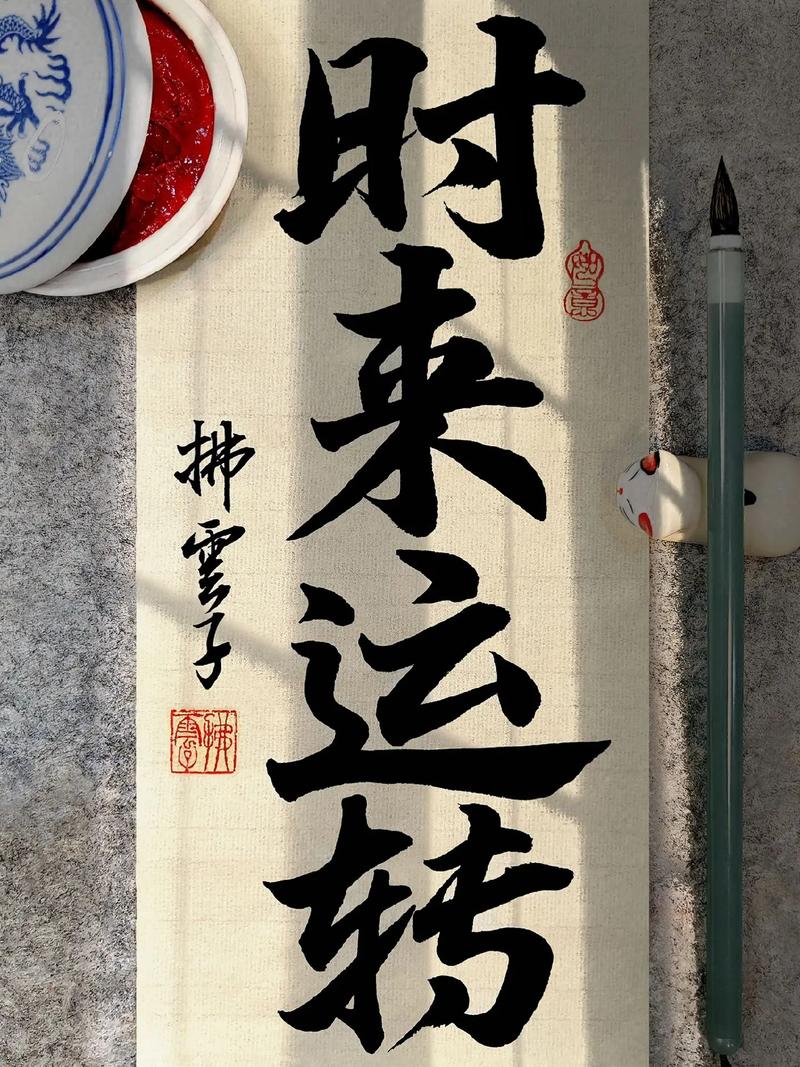 时来运转
拂雲子